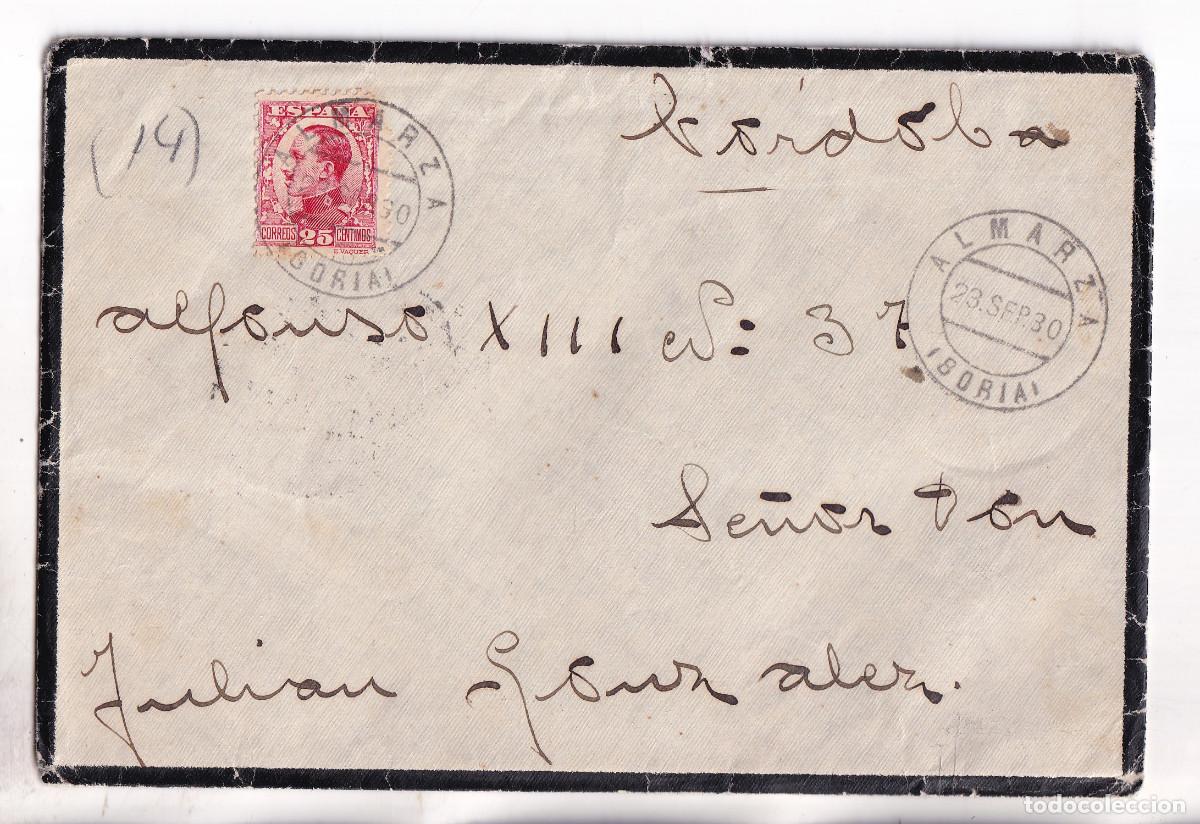 (14)
ESPAÑA
CORREOS 25 CENTIMOS
E. VAQUER
ALMARZA
(SORIA)
Córdoba
ALMARZA
23.SEP.30
(SORIA)
Alfonso XIII Nº: 37
Señor Don
Julian Gonzalez.
todocoleccion